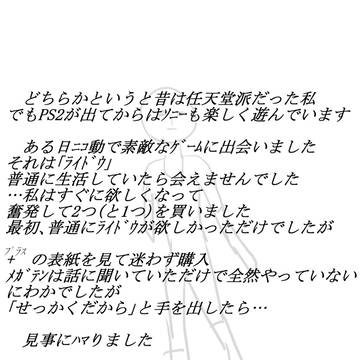 どちらかというと昔は任天堂派だった私
でもPS2が出てからはｿﾆｰも楽しく遊んでいます
ある日ﾆｺ動で素敵なｹﾞｰﾑに出会いました
それは｢ﾗｲﾄﾞｳ｣
普通に生活していたら会えませんでした
…私はすぐに欲しくなって
奮発して2つ(と1つ)を買いました
最初､普通にﾗｲﾄﾞｳが欲しかっただけでしたが
ﾌﾟﾗｽ
+　の表紙を見て迷わず購入
ﾒｶﾞﾃﾝは話に聞いていただけで全然やっていない
にわかでしたが
｢せっかくだから｣と手を出したら…
見事にﾊﾏりました